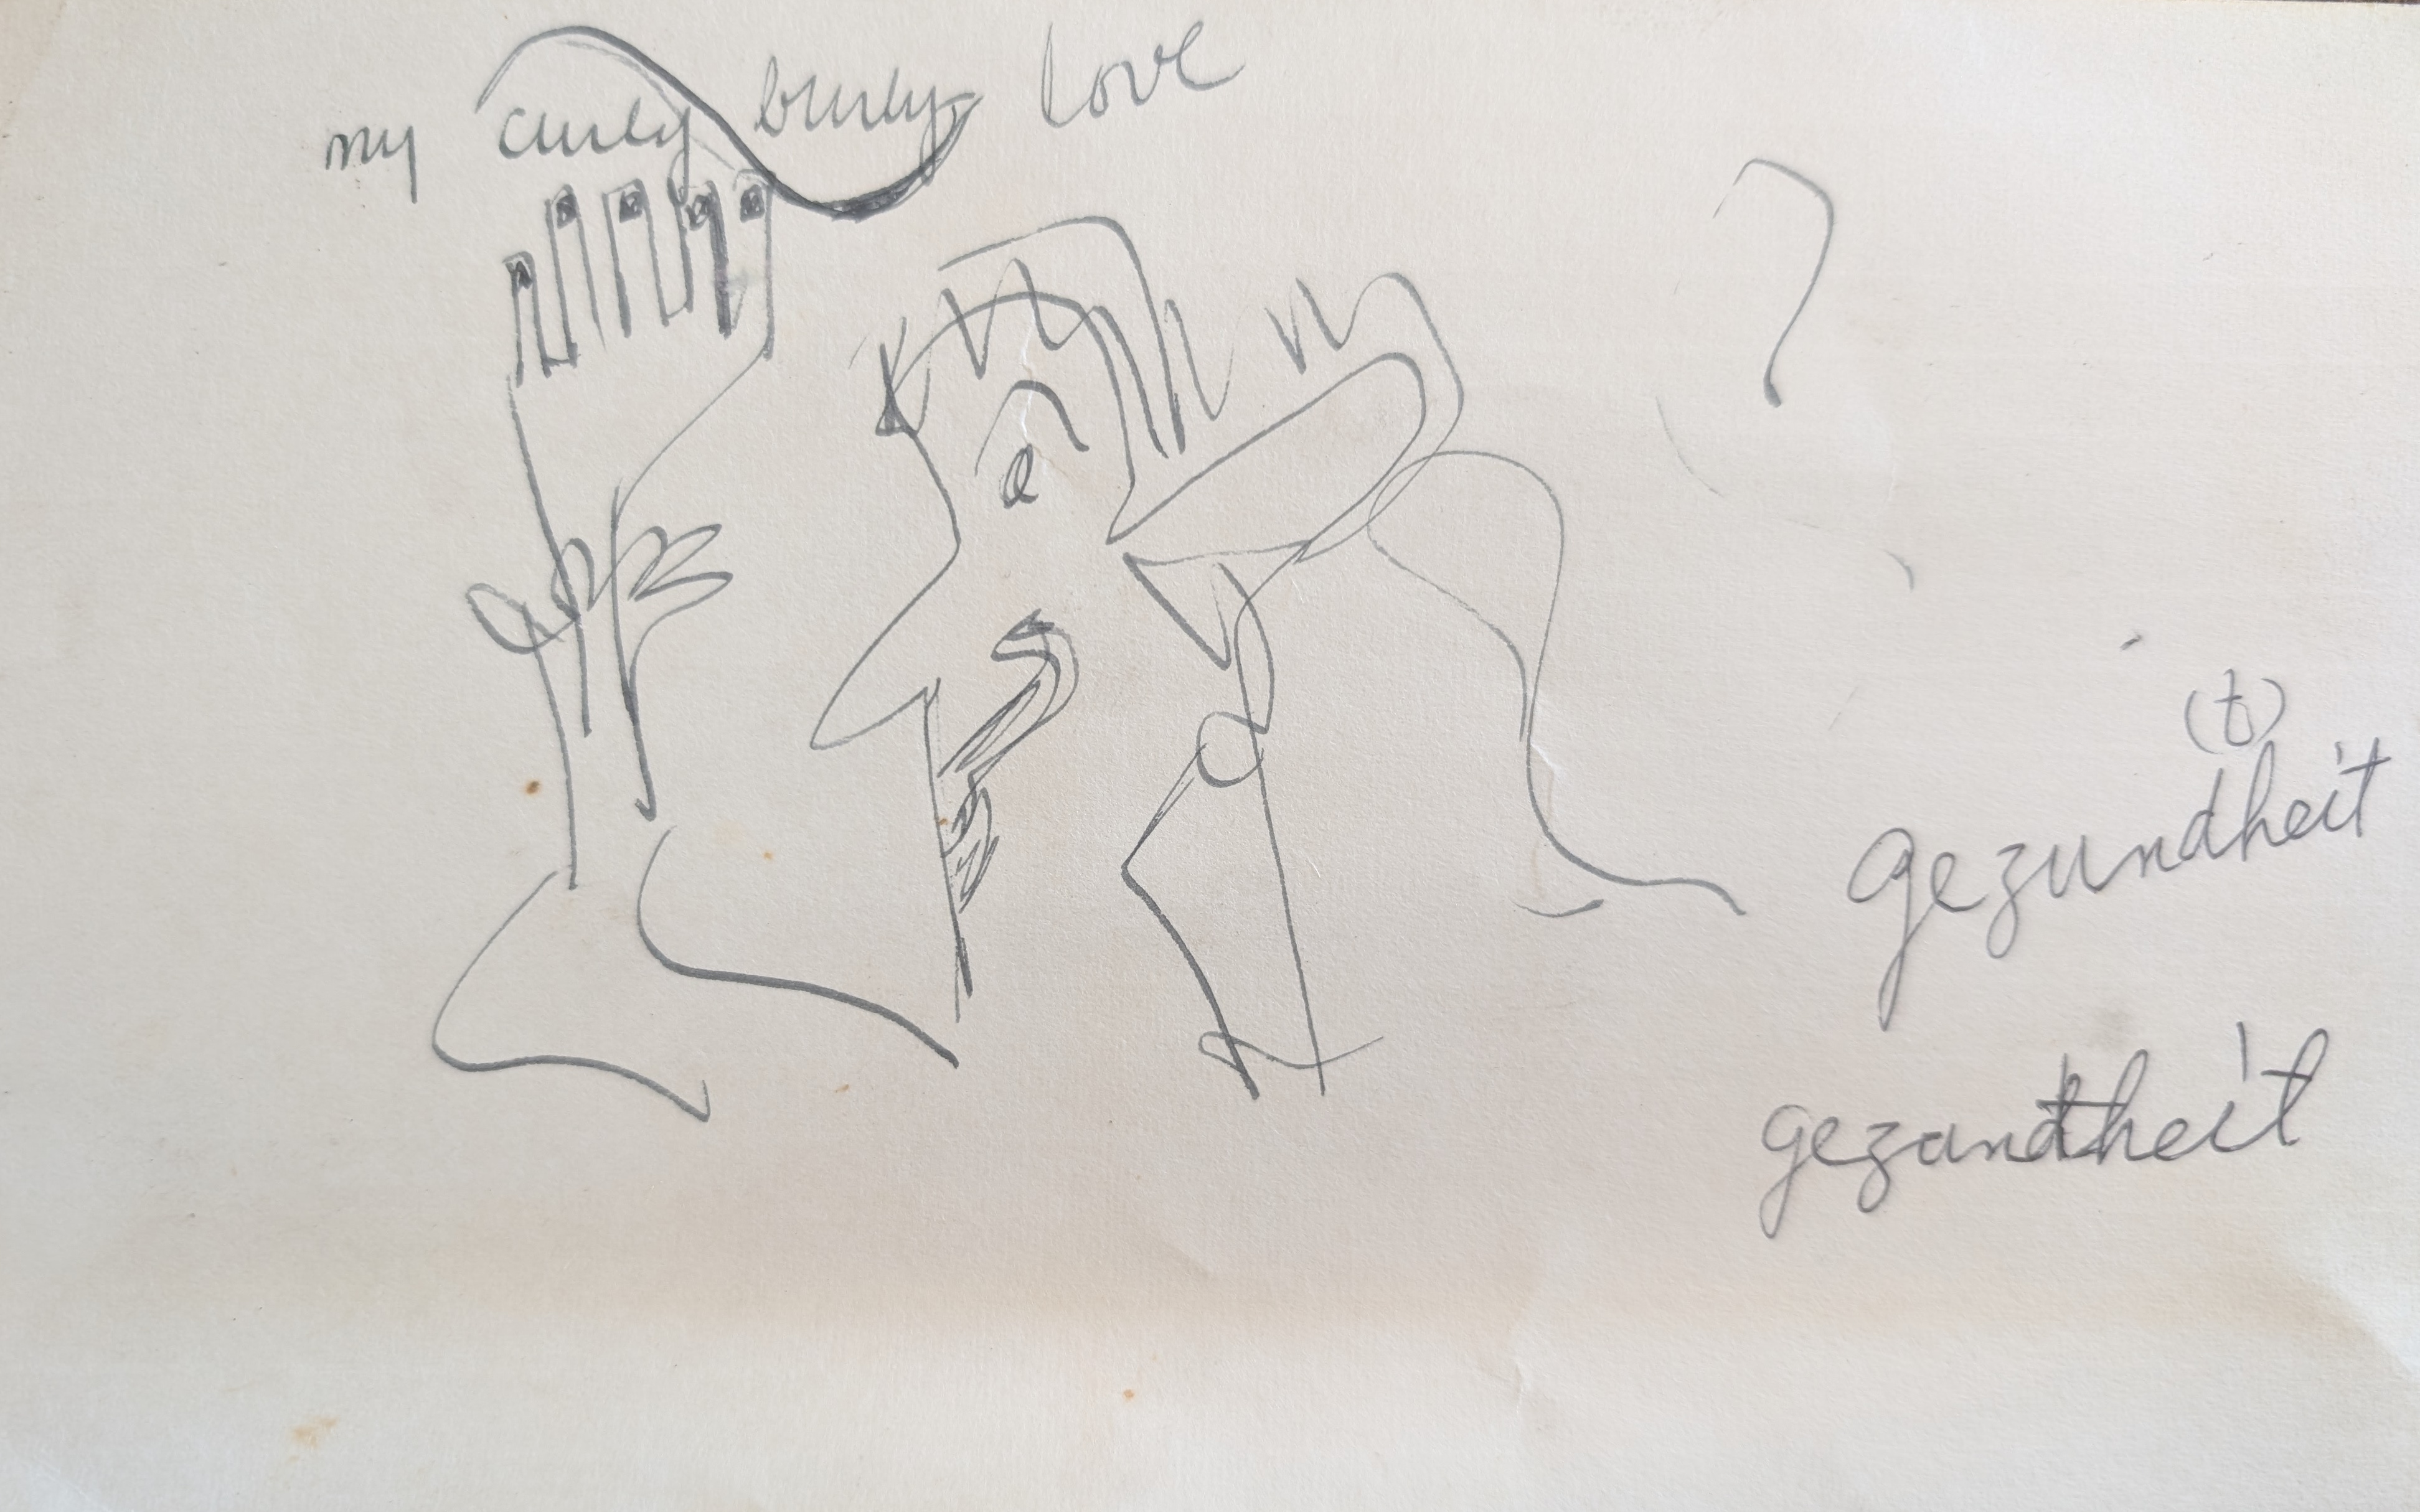 my curly burly love
?
(t)
gezundheit
gezandheit